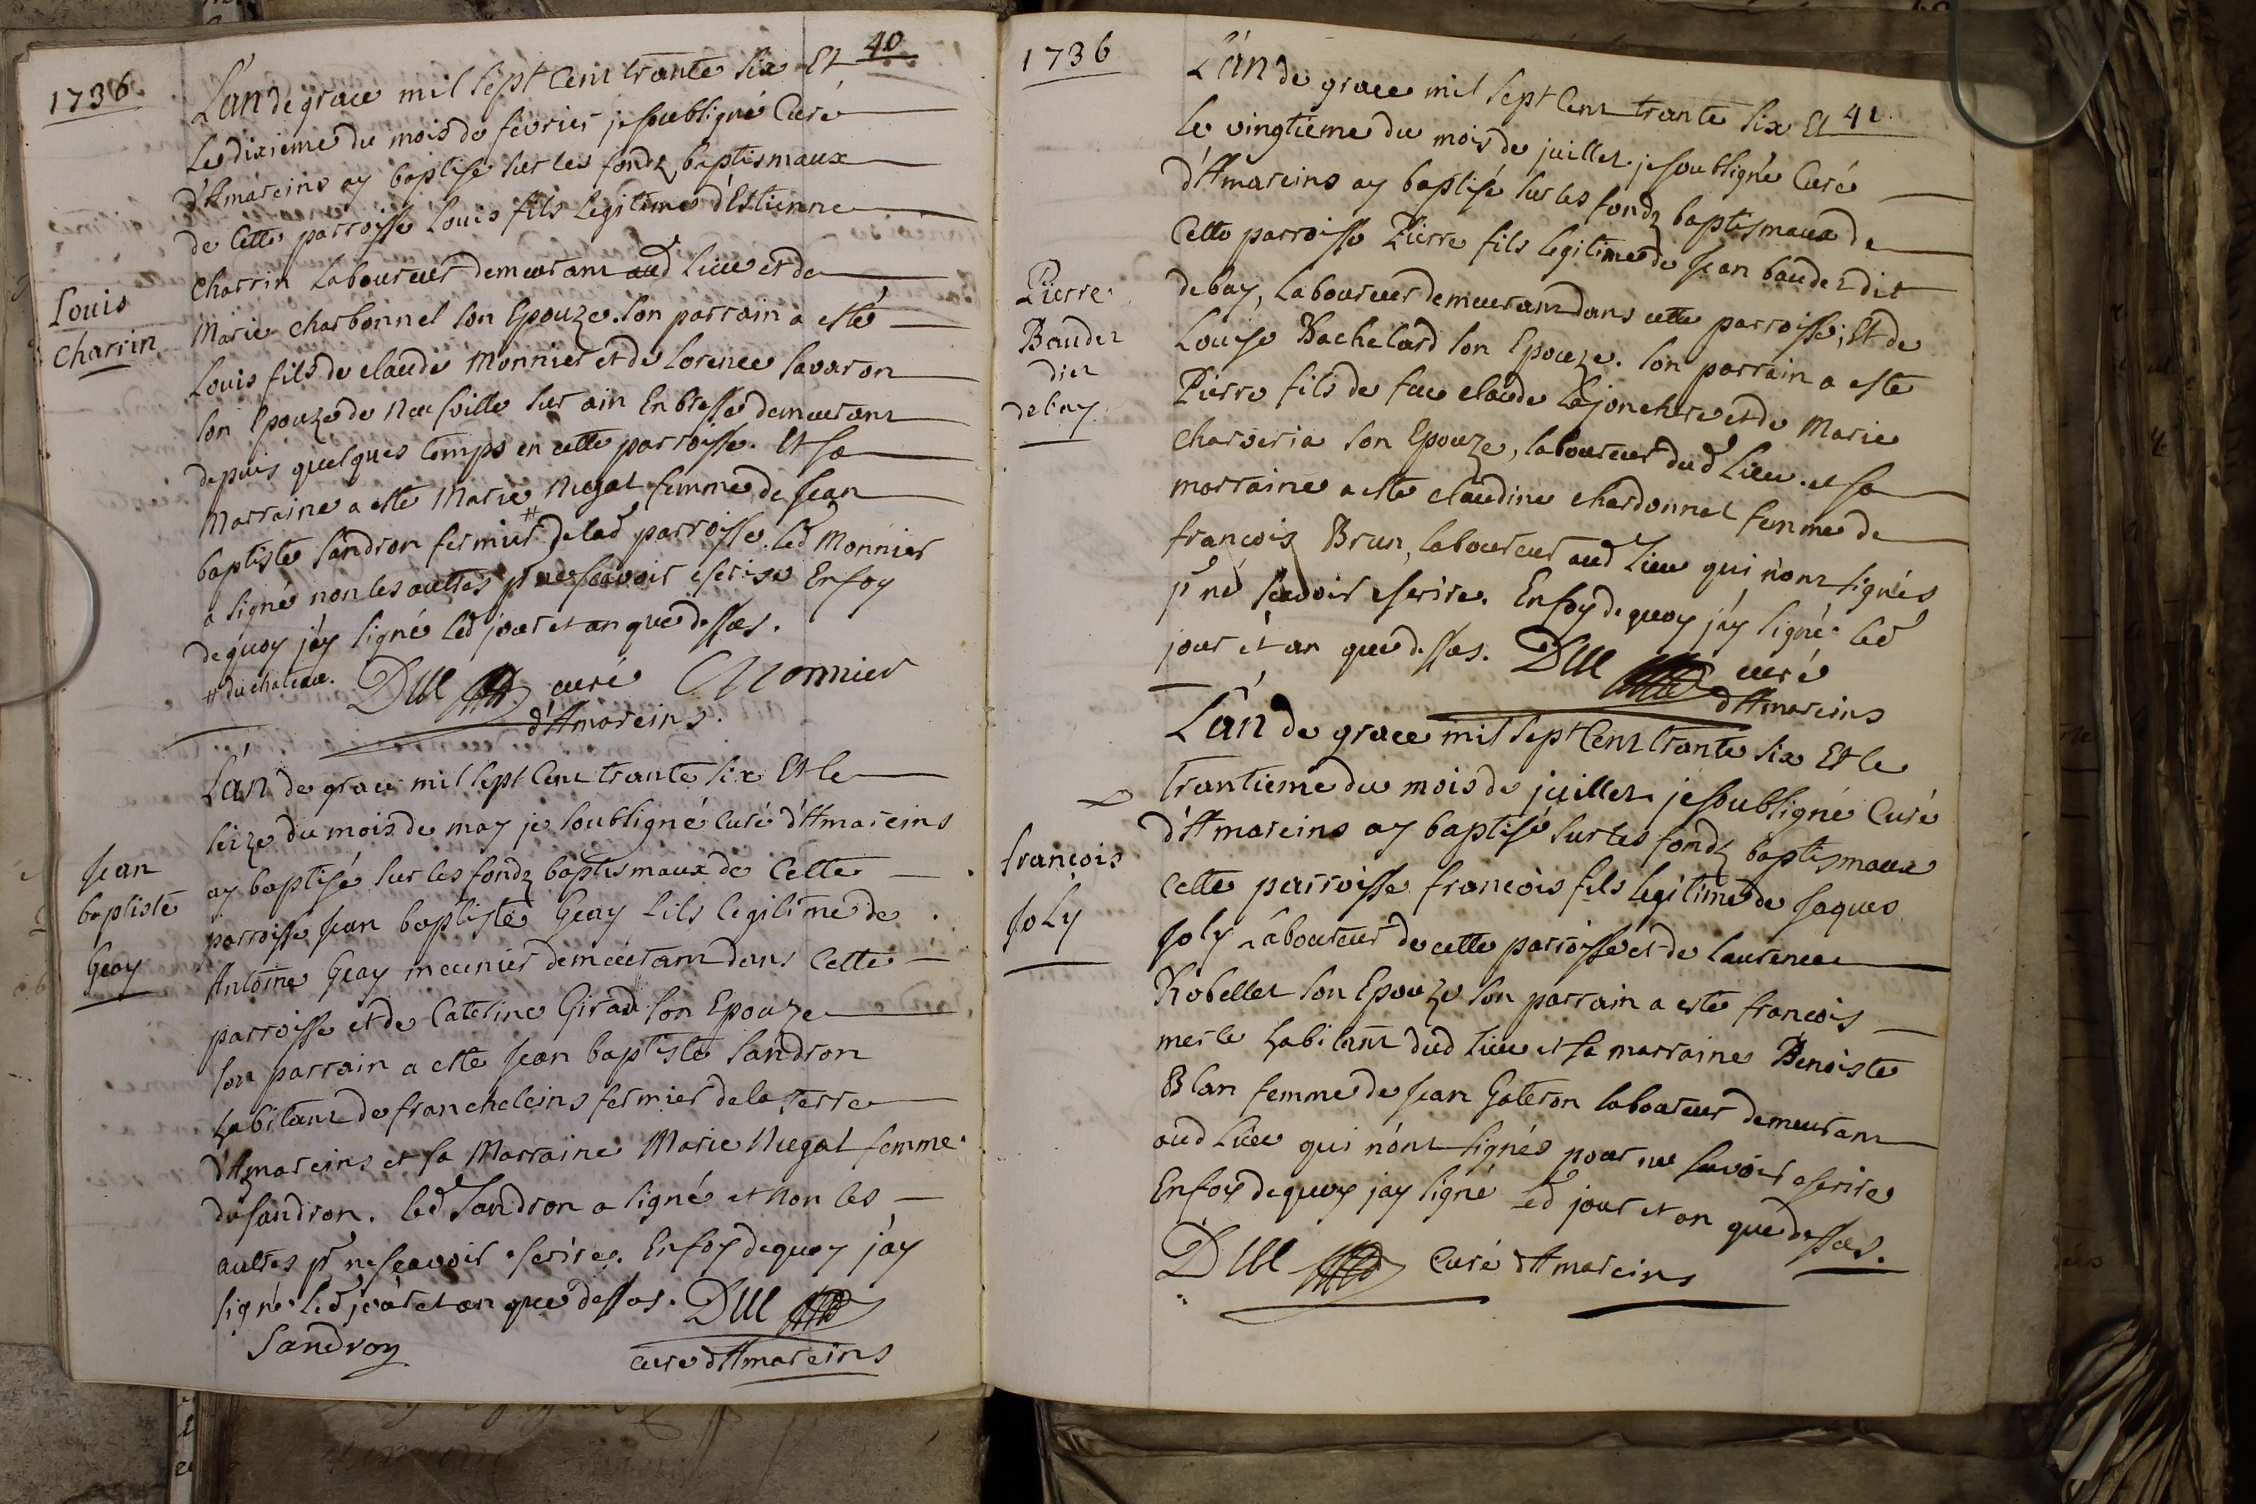 1736.
40
L'an de grace mil sept Cent trante six Et
Le dixieme du mois de fevrier je soubsigné Curé
d'Amareins ay baptisé sur les fondz baptismaux
de Cette parroisse Louis fils legitime d'Estienne
Charrin Laboureur demeurant aud lieu et de
Louis
Charrin
Marie Charbonnel son Epouze. son parrain a esté
Louis fils de claude Monnier et de Lorence Savaron
son Epouze de Neufville sur ain En bresse demeurant
depuis quelques temps en cette parroisse. Et sa
Marraine a esté Marie Nugat femme de Jean
baptiste Sandron fermier # de lad parroisse. led Monnier
a signé non les autres pr ne scavoir escrire En foy
de quoy j'ay signé led jour et an que dessus.
# du chateau.
curé
Monnier
d'Amareins.
L'an de grace mil sept Cent trante six Et le
seize du mois de may je soubsigné Curé d'Amareins
ay baptisé sur les fondz baptismaux de Cette
Jean
baptiste
Geay
parroisse Jean baptiste Geay fils legitime de
Antoine Geay meunier demeurant dans Cette
parroisse et de Caterine Giraud son Epouze
son parrain a esté Jean baptiste Sandron
habitant de francheleins fermier de la terre
d'Amareins et sa Marraine Marie Nugat femme
dud Sandron. led Sandron a signé et non les
autres pr ne scavoir escrire. En foy de quoy j'ay
signé led jour et an que dessus.
Sandron
curé d'Amareins
1736
41
L'an de grace mil sept Cent trante six Et
le vingtieme du mois de juillet je soubsigné Curé
d'Amareins ay baptisé sur les fondz baptismaux de
Cette parroisse Pierre fils legitime de Jean baudet dit
Pierre
Baudet
dit
debay
debay, laboureur demeurant dans cette parroisse, Et de
Louise Bachelard son Epouze. son parrain a esté
Pierre fils de feu claude Lajonchere et de Marie
Charveria son Epouze, laboureur dud lieu. et sa
marraine a esté claudine Chardonnet femme de
françois Brun, laboureur aud lieu qui n'ont signés
pr ne scavoir escrire. En foy de quoy j'ay signé led
jour et an que dessus.
curé
d'Amareins
L'an de grace mil sept Cent trante six Et le
trantieme du mois de juillet je soubsigné Curé
d'Amareins ay baptisé sur les fondz baptismaux
françois
Joly
Cette parroisse françois fils legitime de Jaques
Joly Laboureur de cette parroisse et de laurence
Robellet son Epouze son parrain a esté françois
merle habitant dud lieu et sa marraine Benoiste
Blan femme de Jean Gateron laboureur demeurant
aud lieu qui n'ont signés pour ne scavoir escrire
En foy de quoy jay signé led jour et an que dessus.
Curé d'Amareins